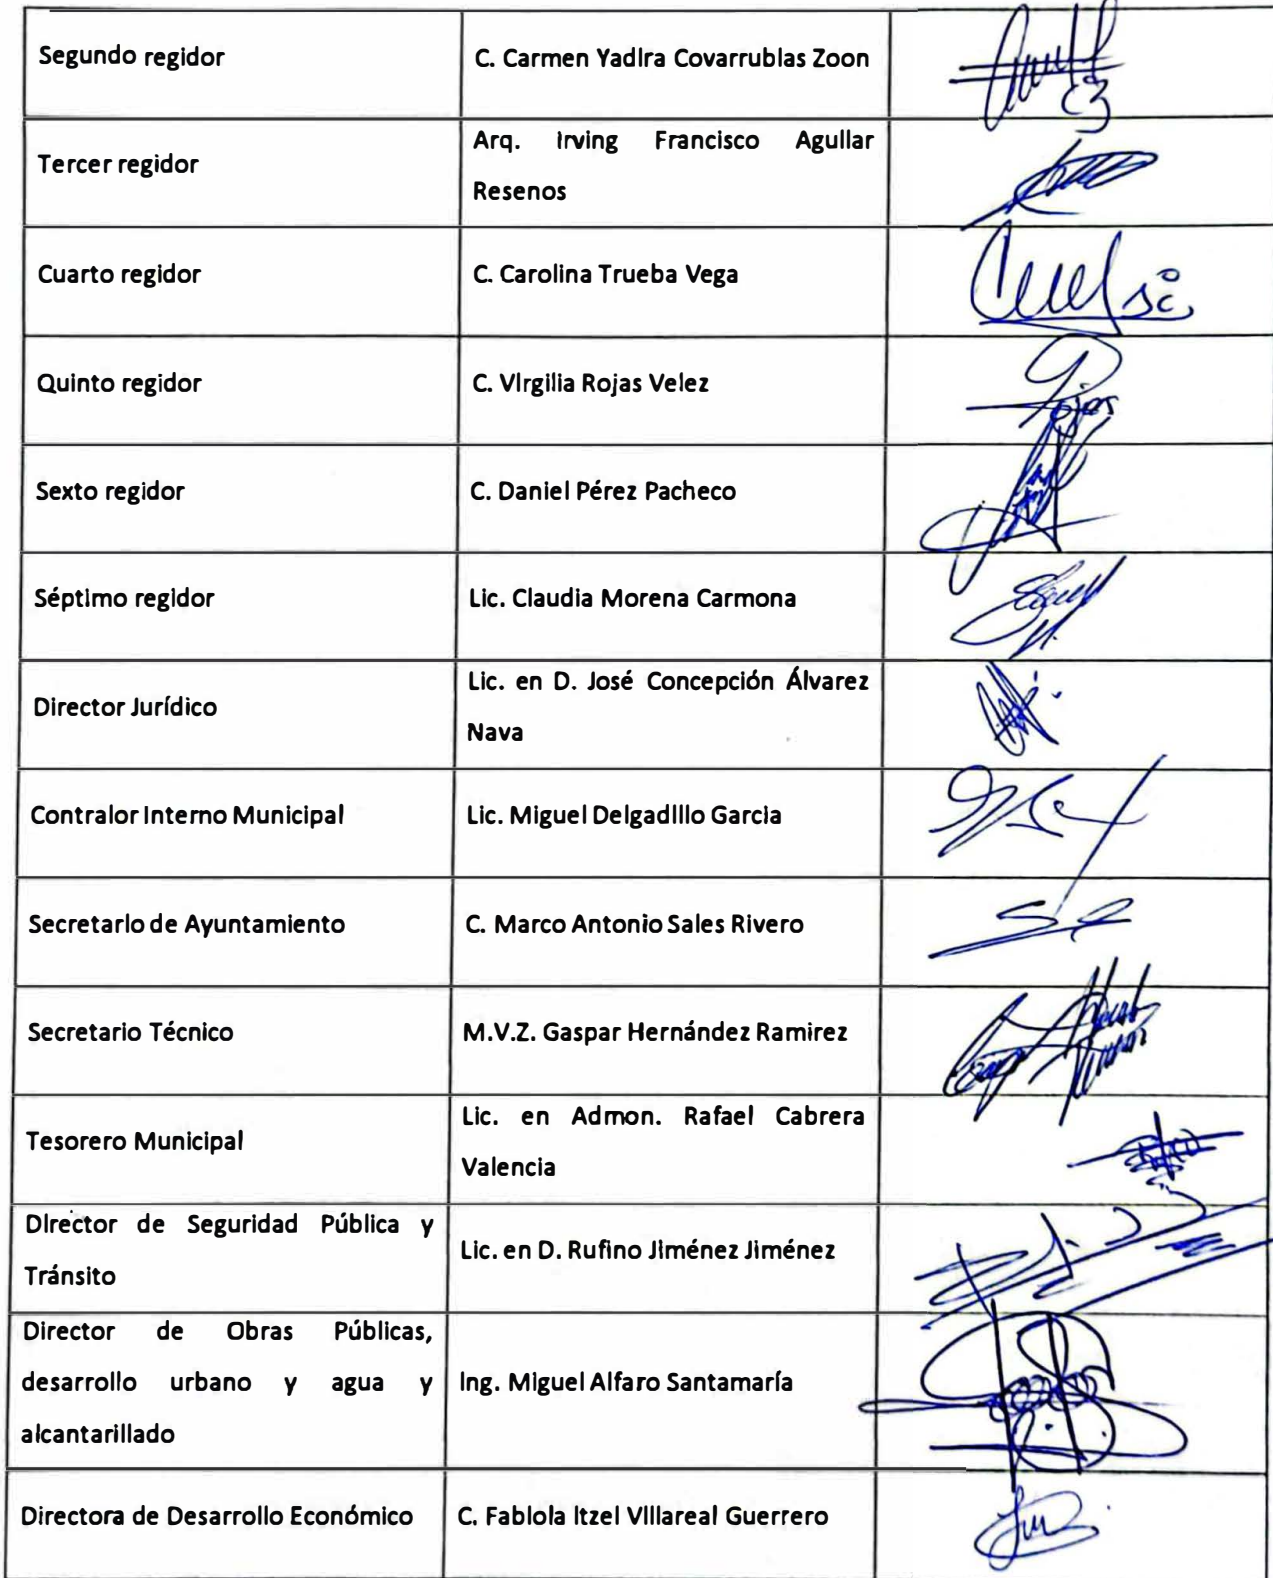 Segundo regidor
C. Carmen Yadira Covarrubias Zoon
Tercer regidor
Arq. Irving Francisco Aguilar
Resenos
Cuarto regidor
C. Carolina Trueba Vega
Quinto regidor
C. Virgilia Rojas Velez
Rojas
Sexto regidor
C. Daniel Pérez Pacheco
Séptimo regidor
Lic. Claudia Morena Carmona
Director Jurídico
Lic. en D. José Concepción Álvarez
Nava
Contralor Interno Municipal
Lic. Miguel Delgadillo Garcia
Secretario de Ayuntamiento
C. Marco Antonio Sales Rivero
Secretario Técnico
M.V.Z. Gaspar Hernández Ramirez
Tesorero Municipal
Lic. en Admon. Rafael Cabrera
Valencia
Director de Seguridad Pública y
Tránsito
Lic. en D. Rufino Jiménez Jiménez
Director de Obras Públicas,
desarrollo urbano y agua y
alcantarillado
Ing. Miguel Alfaro Santamaría
Directora de Desarrollo Económico
C. Fabiola Itzel Villareal Guerrero